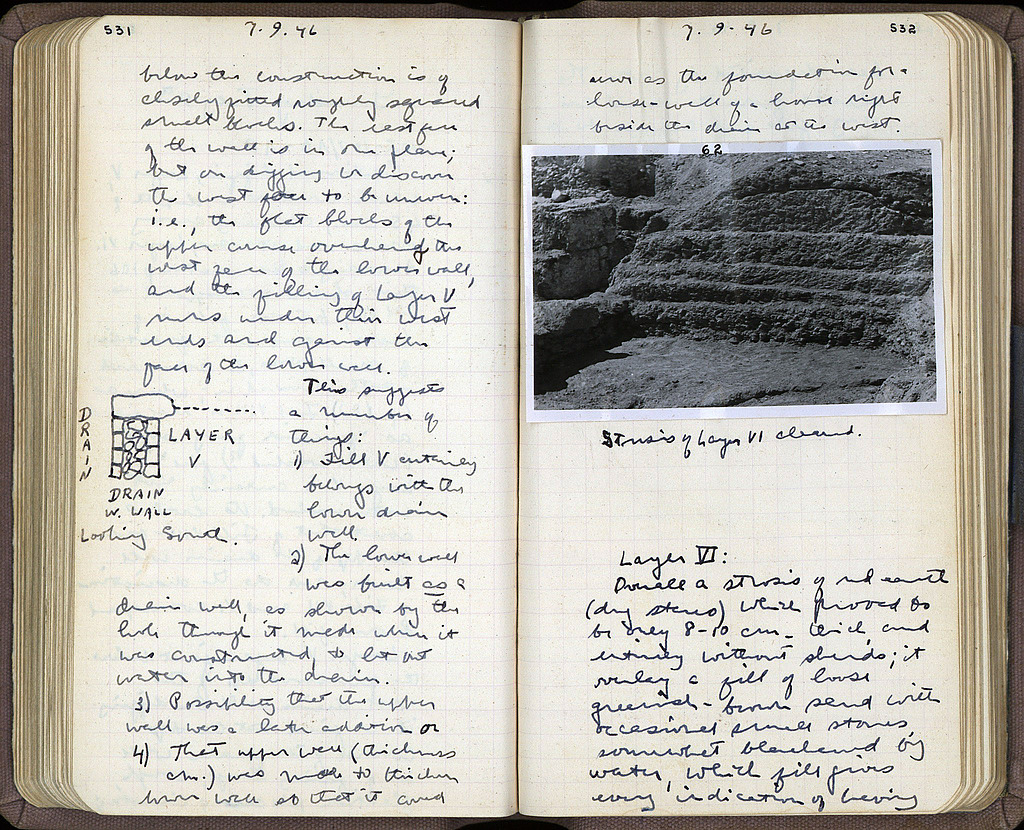 531
7.9.46
below this construction is of
closely fitted roughly squared
small blocks. The east face
of the wall is in one plane;
but on digging we discover
the west face to be uneven:
i.e., the flat blocks of the
upper course overhang the
west face of the lower wall,
and the filling of Layer V
runs under their west
ends and against the
face of the lower wall.
This suggests
a number of
things:
1) Fill V certainly
belongs with the
lower drain
wall.
2) The lower wall
was built as a
drain wall, as shown by the
hole through it made when it
was constructed, to let out
water into the drain.
3) Possibility that the upper
wall was a later addition or
4) That upper wall (thickness
cm.) was made to thicken
lower wall so that it could
DRAIN
LAYER
V
DRAIN
W. WALL
Looking South.
7.9.46
532
serve as the foundation for a
house-wall of a house right
beside the drain at the west.
62
Strosis of Layer VI cleared.
Layer VI:
a strosis of red earth
(dry stereo) which proved to
be only 8-10 cm. thick, and
entirely without sherds; it
overlay a fill of loose
greenish-brown sand with
occasional small stones
somewhat blackened by
water, which fill gives
every indication of having